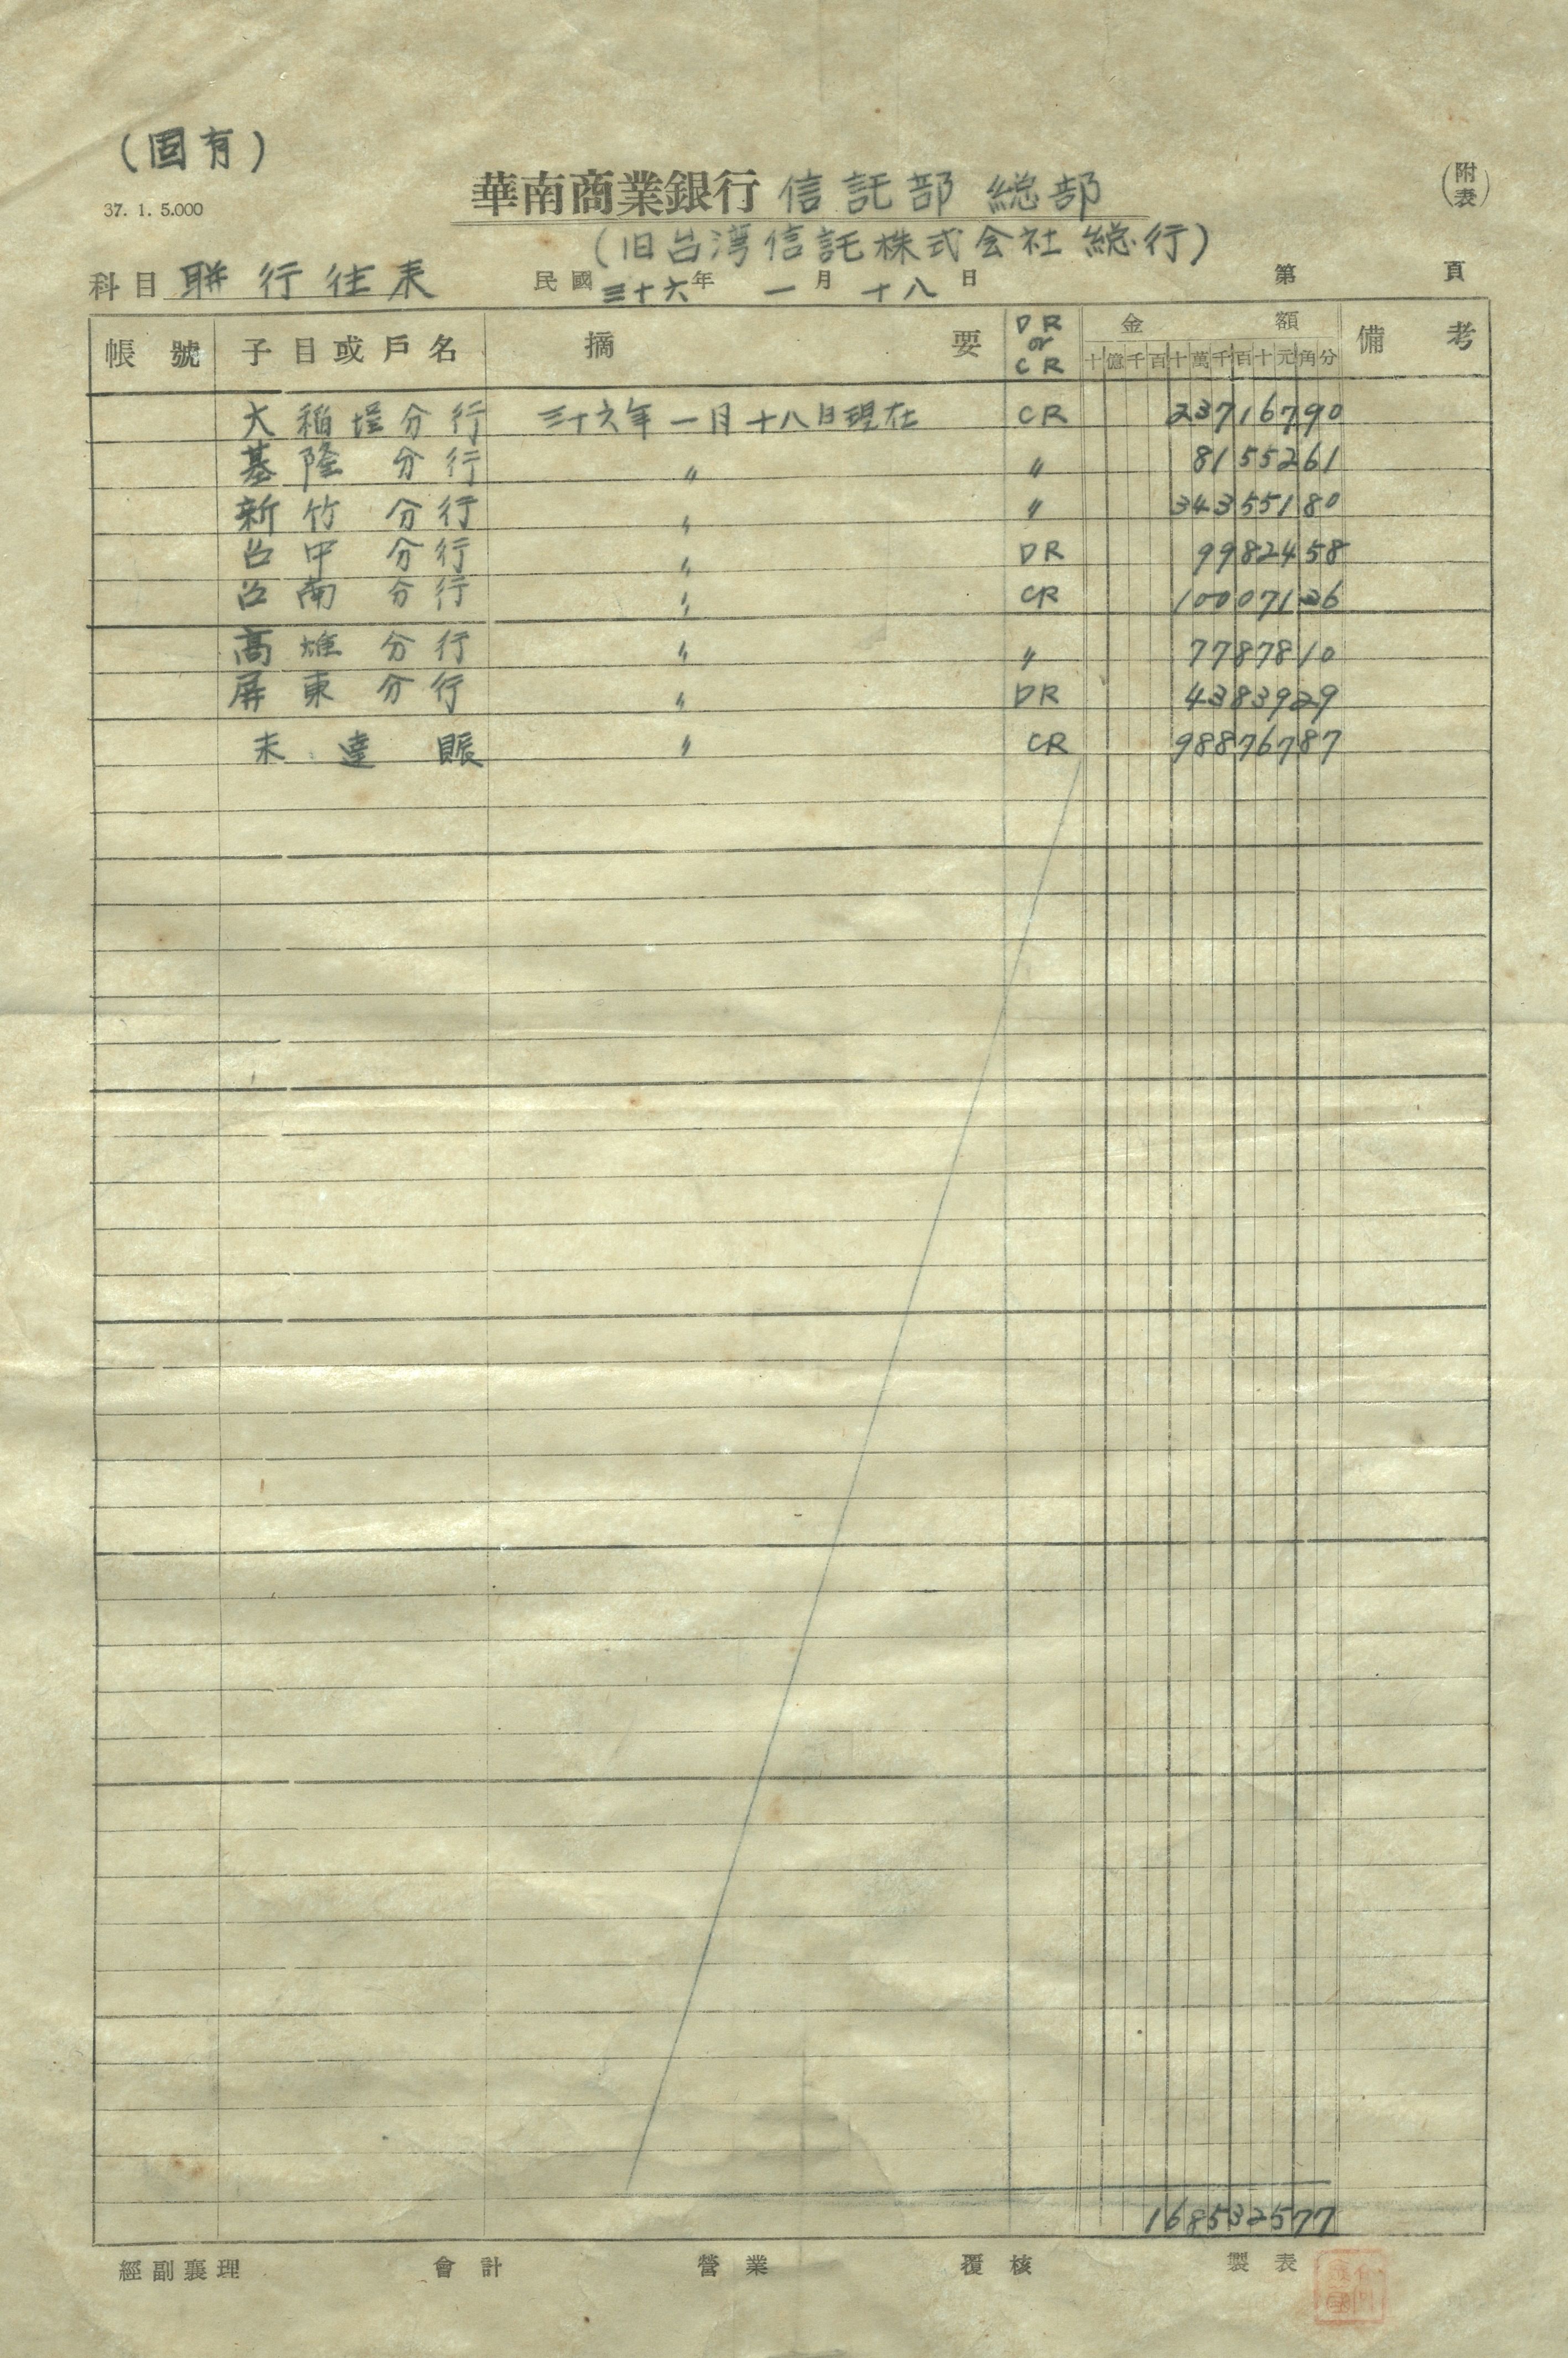 (固有)
37. 1. 5.000
華南商業銀行 信託部 総部
(附表)
(旧台湾信託株式会社 総行)
科目 聯行往来 民國 三十六年 一月 十八日 第 頁
帳號 子目或戶名 摘要 DR or CR 金額 備考
十億千百十萬千百十元角分
大稻埕分行 三十六年一月十八日現在 CR 23716790
基隆分行 〃 〃 8155261
新竹分行 〃 〃 34355180
台中分行 〃 DR 9982458
台南分行 〃 CR 10007136
高雄分行 〃 〃 7787810
屏東分行 〃 DR 4383929
未達賬 〃 CR 98876787
168532577
經副襄理 會計 營業 覆核 製表